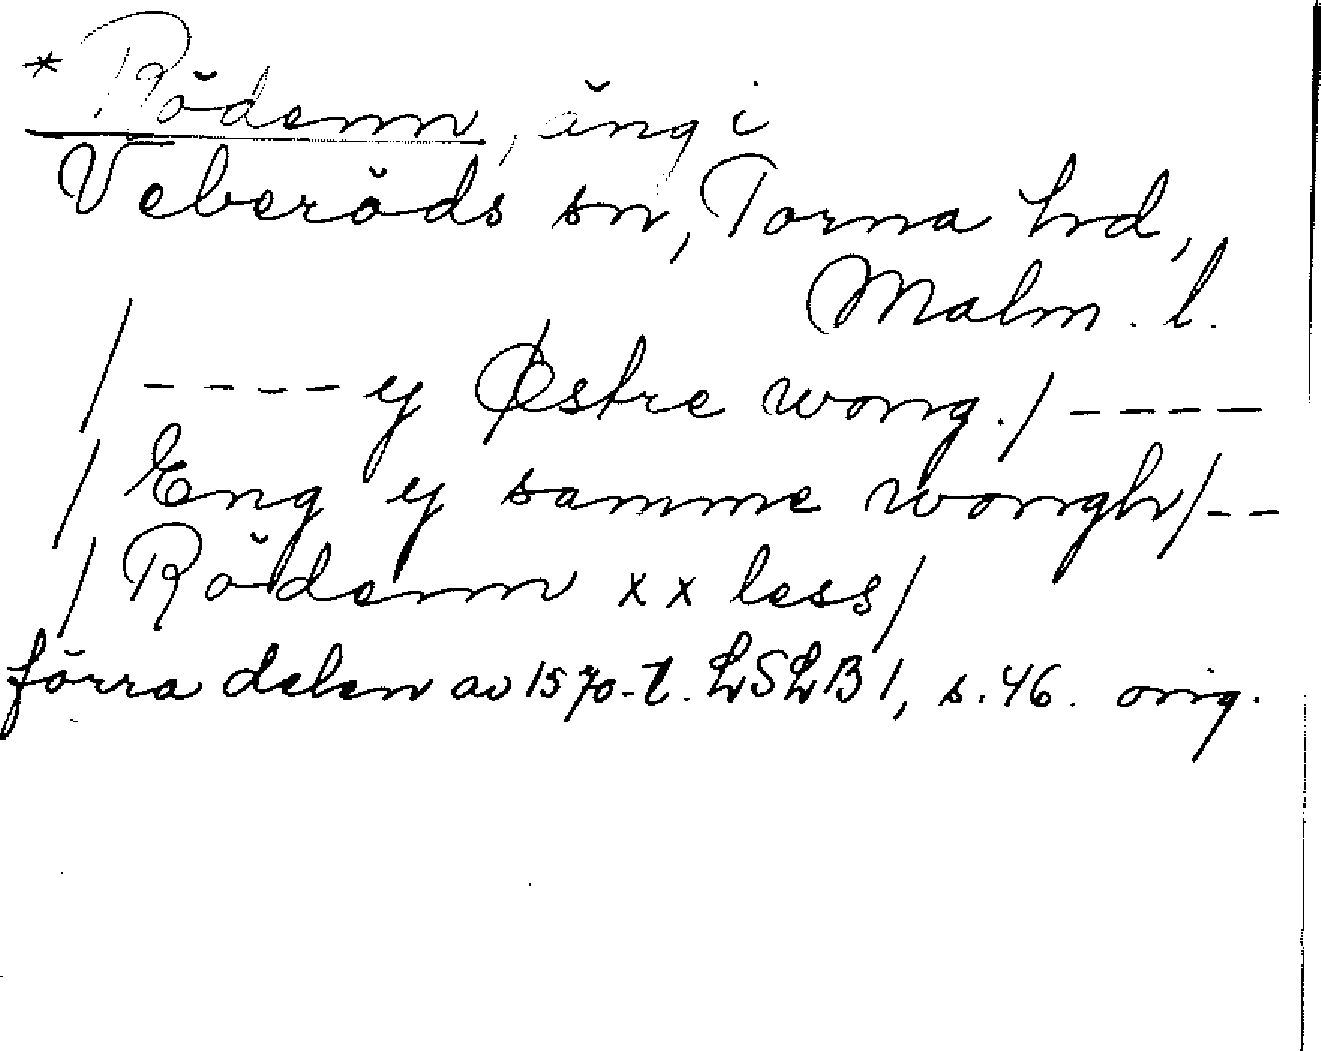 * Rödenn, äng i
Veberöds sn, Torna hd,
Malm. l.
/ - - - - y Østre wong. / - - - -
/ Eng y samme wongh / - -
/ Rödenn x x less /
förra delen av 1570-t. LSLB 1, s. 46. orig.